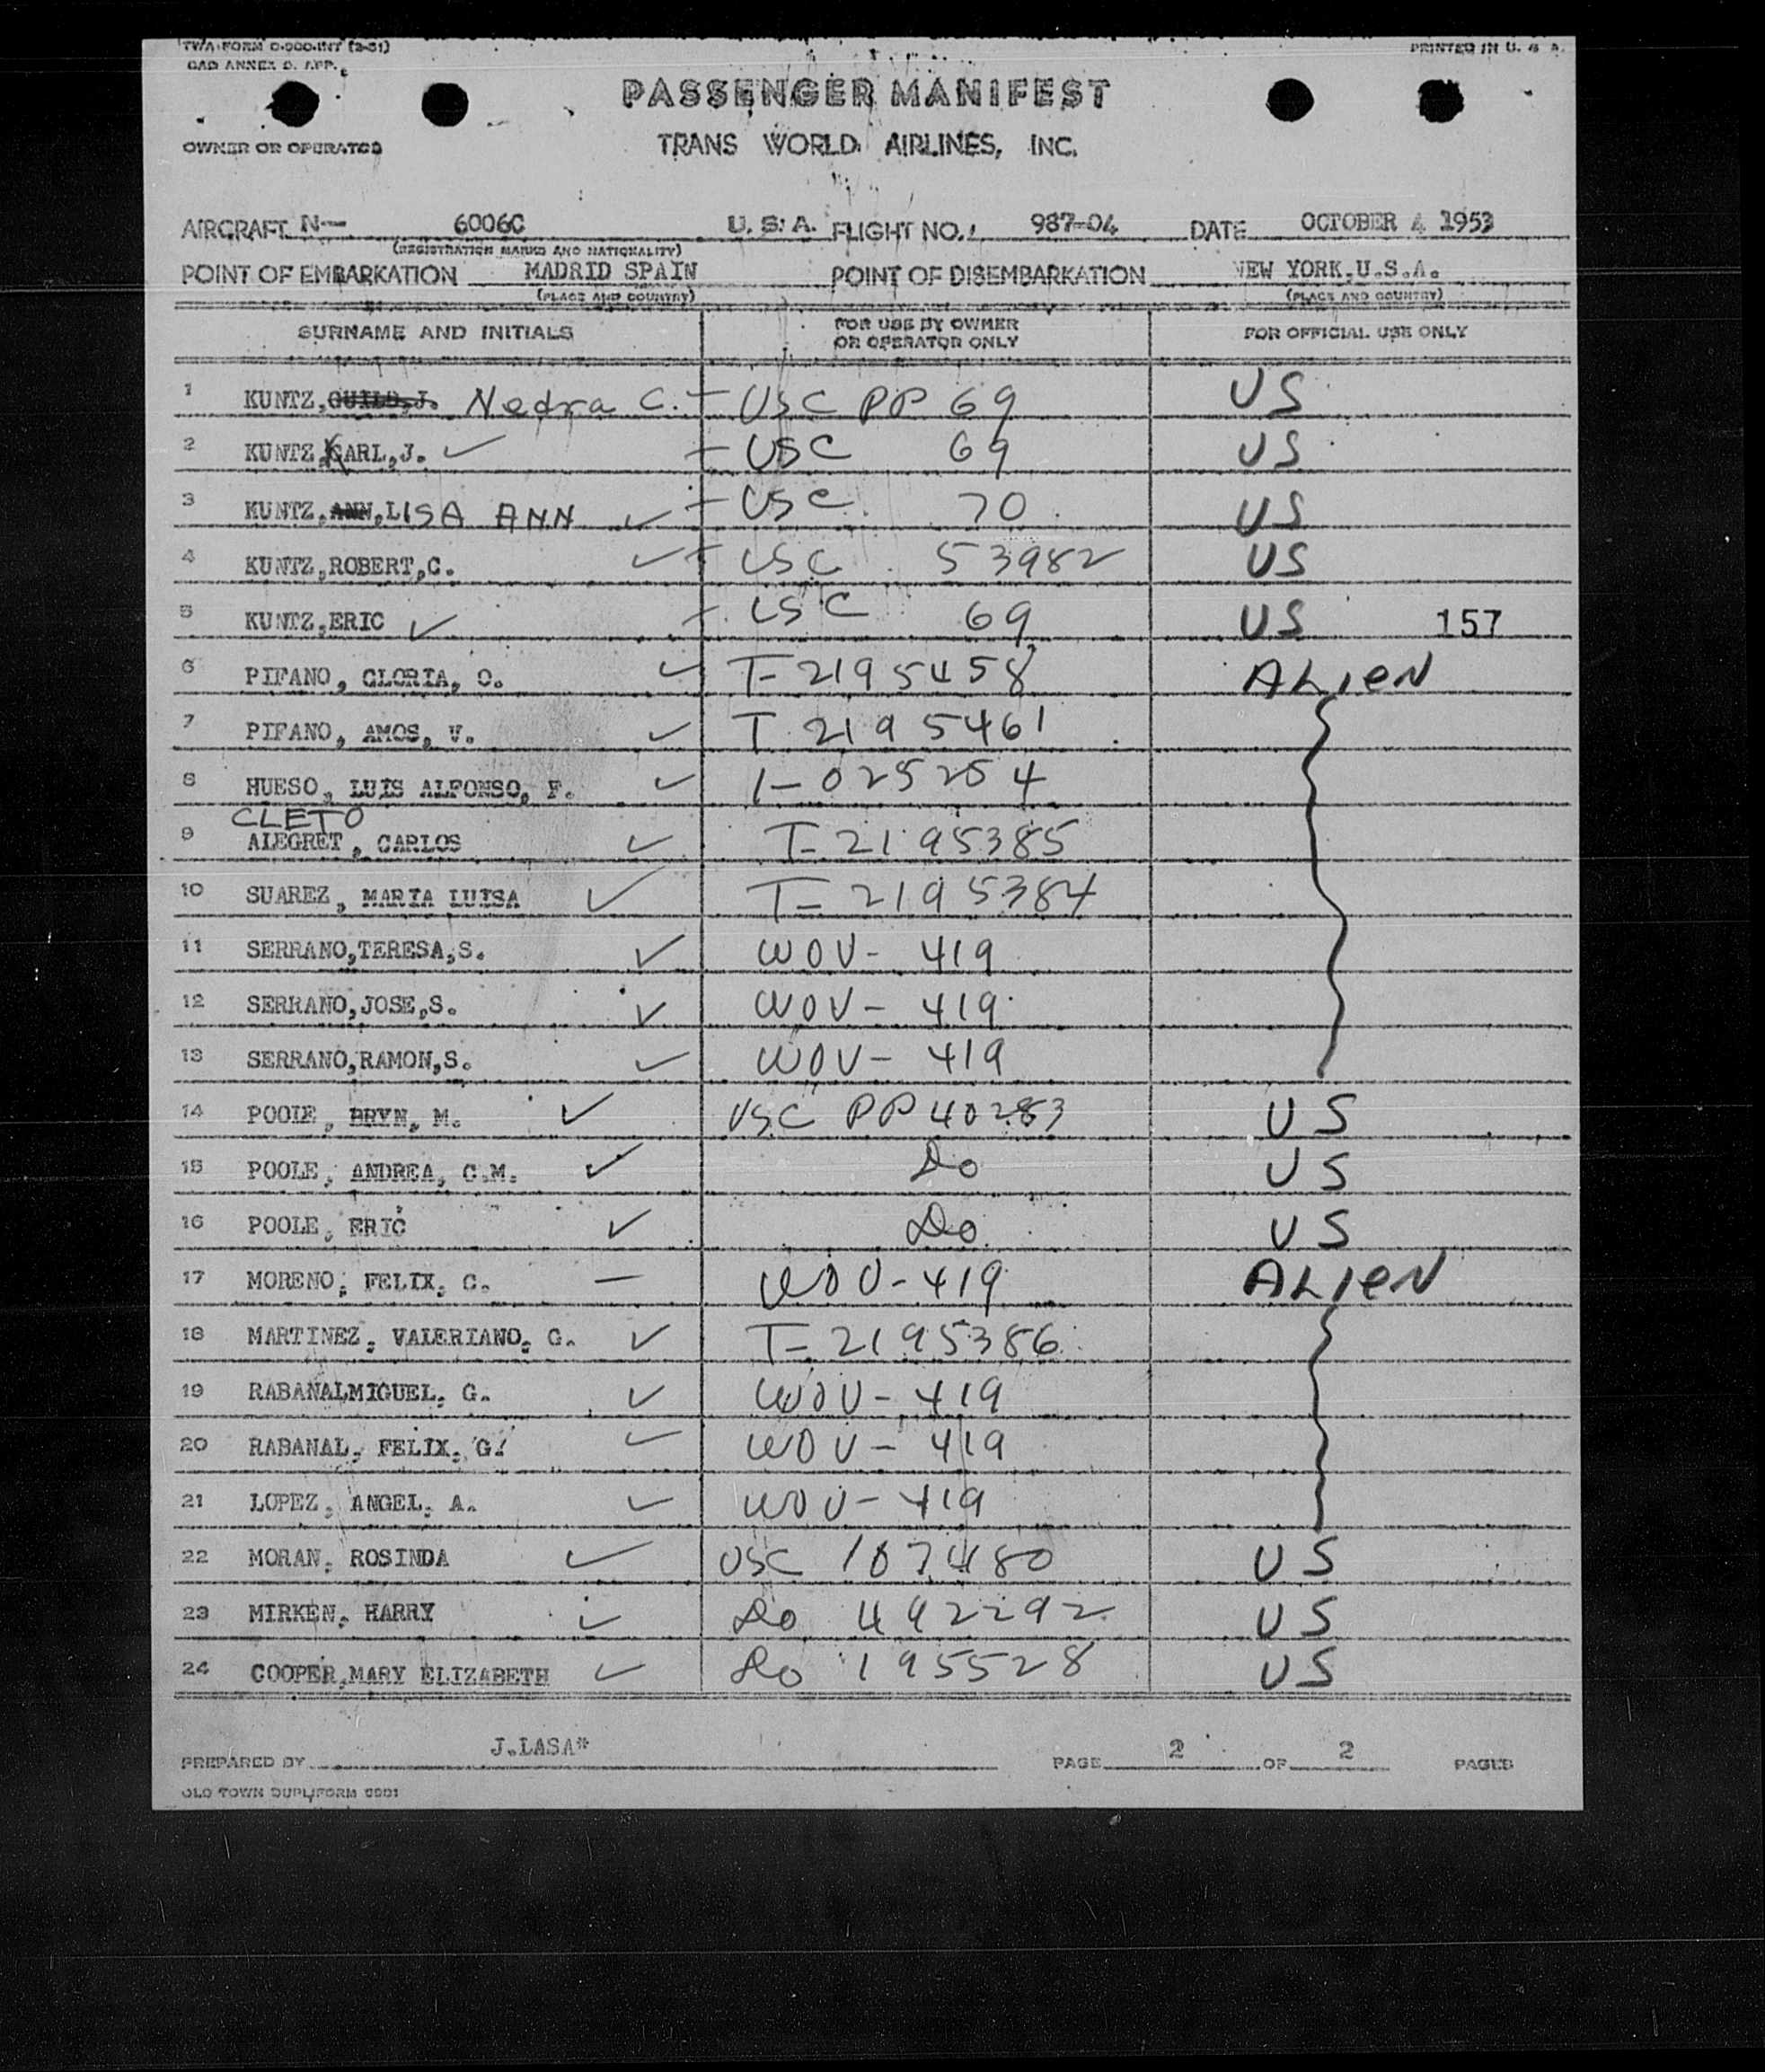 TWA FORM O-900-INT (2-51)
PRINTED IN U. S. A.
CAB ANNEX D. APP.
PASSENGER MANIFEST
OWNER OR OPERATOR
TRANS WORLD AIRLINES, INC.
AIRCRAFT N— 6006C U.S.A. FLIGHT NO. 987-04 DATE OCTOBER 4 1953
(REGISTRATION MARKS AND NATIONALITY)
POINT OF EMBARKATION MADRID SPAIN POINT OF DISEMBARKATION NEW YORK,U.S.A.
(PLACE AND COUNTRY) (PLACE AND COUNTRY)
SURNAME AND INITIALS FOR USE BY OWNER OR OPERATOR ONLY FOR OFFICIAL USE ONLY
1 KUNTZ, Nedra C. – USC PP 69 US
2 KUNTZ,KARL,J. ✓ – USC 69 US
3 KUNTZ,ANN,LISA ANN ✓ – USC 70 US
4 KUNTZ,ROBERT,C. ✓ – USC 53982 US
5 KUNTZ,ERIC ✓ – USC 69 US 157
6 PIFANO, GLORIA, O. ✓ T-2195458 ALIEN
7 PIFANO, AMOS, V. ✓ T 2195461
8 HUESO, LUIS ALFONSO, F. ✓ 1-025254
CLETO
9 ALEGRET, CARLOS ✓ T-2195385
10 SUAREZ, MARIA LUISA ✓ T-2195384
11 SERRANO,TERESA,S. ✓ WOV- 419
12 SERRANO,JOSE,S. ✓ WOV- 419
13 SERRANO,RAMON,S. ✓ WOV- 419
14 POOLE, BRYN, M. ✓ USC PP 40283 US
15 POOLE, ANDREA, C.M. ✓ Do US
16 POOLE, ERIC ✓ Do US
17 MORENO, FELIX, C. — WOV-419 ALIEN
18 MARTINEZ, VALERIANO, G. ✓ T-2195386
19 RABANALMIGUEL, G. ✓ WOV-419
20 RABANAL, FELIX, G. ✓ WOV-419
21 LOPEZ, ANGEL, A. ✓ WOV-419
22 MORAN, ROSINDA ✓ USC 107480 US
23 MIRKEN, HARRY ✓ Do 492292 US
24 COOPER,MARY ELIZABETH ✓ Do 195528 US
PREPARED BY J.LASA* PAGE 2 OF 2 PAGES
OLD TOWN DUPLIFORM